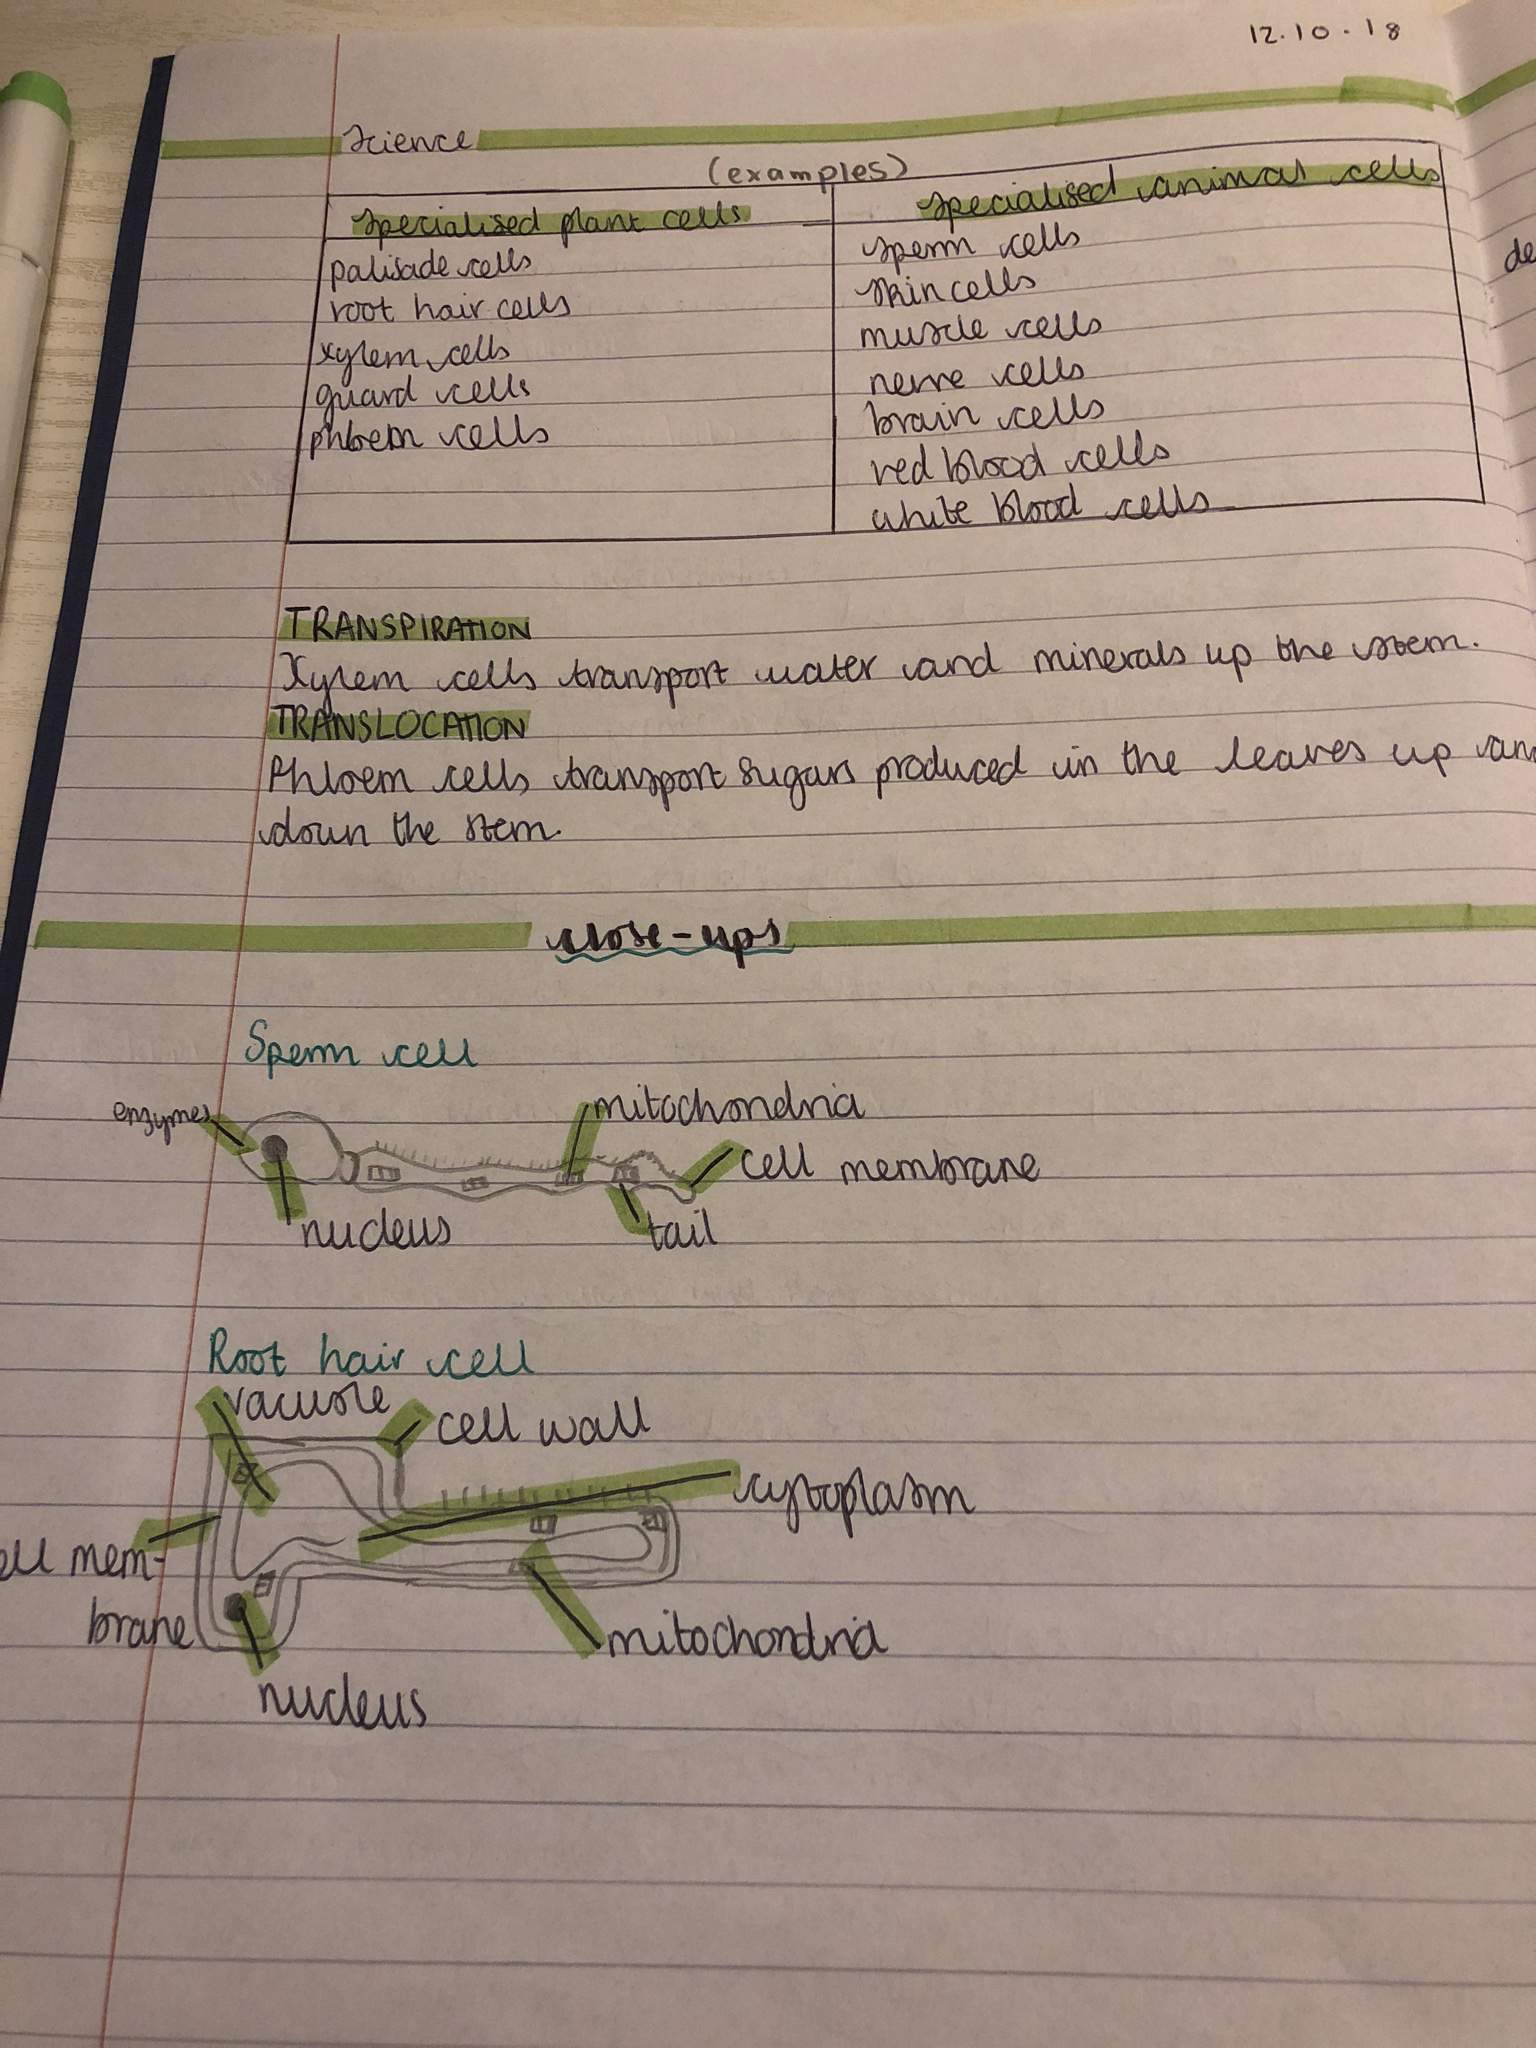 12.10.18
Science
(examples)
specialised plant cells
palisade cells
root hair cells
xylem cells
guard cells
phloem cells
specialised animal cells
sperm cells
skin cells
muscle cells
nerve cells
brain cells
red blood cells
white blood cells
de
TRANSPIRATION
Xylem cells transport water and minerals up the stem.
TRANSLOCATION
Phloem cells transport sugars produced in the leaves up an
down the stem.
close-ups
Sperm cell
enzymes
mitochondria
cell membrane
nucleus
tail
Root hair cell
vacuole
cell wall
cytoplasm
ell mem-
brane
mitochondria
nucleus